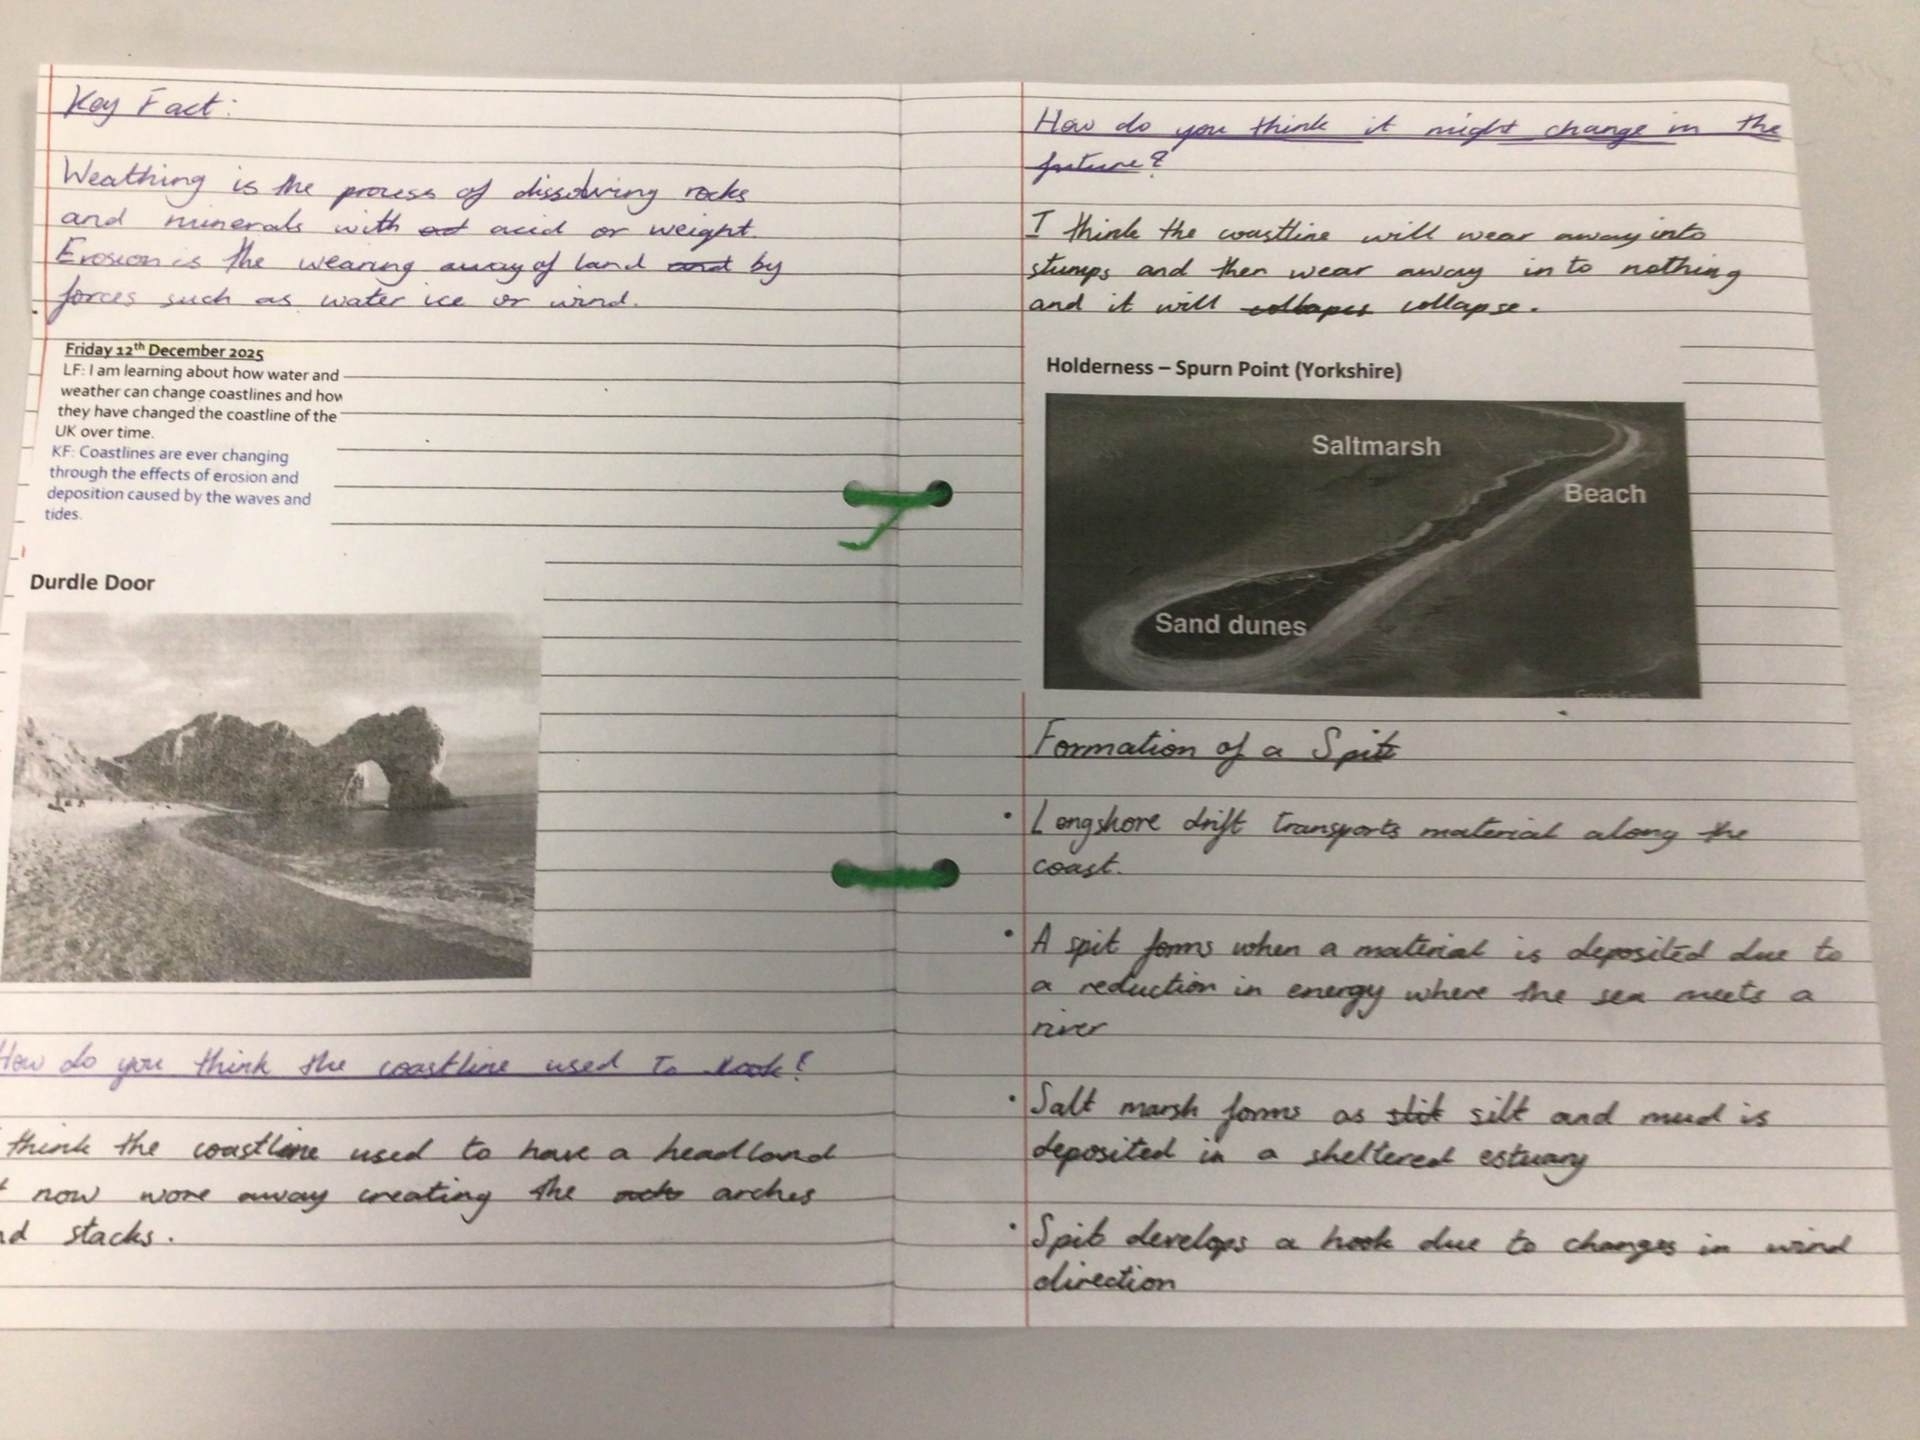 Key Fact:
Weathing is the process of dissolving rocks
and minerals with acid or weight.
Erosion is the wearing away of land by
forces such as water ice or wind.
Friday 12th December 2025
LF: I am learning about how water and
weather can change coastlines and how
they have changed the coastline of the
UK over time.
KF: Coastlines are ever changing
through the effects of erosion and
deposition caused by the waves and
tides.
Durdle Door
How do you think the coastline used to look?
think the coastline used to have a headland
now wore away creating the arches
stacks.
How do you think it might change in the
future?
I think the coastline will wear away into
stumps and then wear away in to nothing
and it will collapse.
Holderness – Spurn Point (Yorkshire)
Saltmarsh
Beach
Sand dunes
Formation of a Spit
• Longshore drift transports material along the
coast.
• A spit forms when a material is deposited due to
a reduction in energy where the sea meets a
river
• Salt marsh forms as silt and mud is
deposited in a sheltered estuary
• Spit develops a hook due to changes in wind
direction